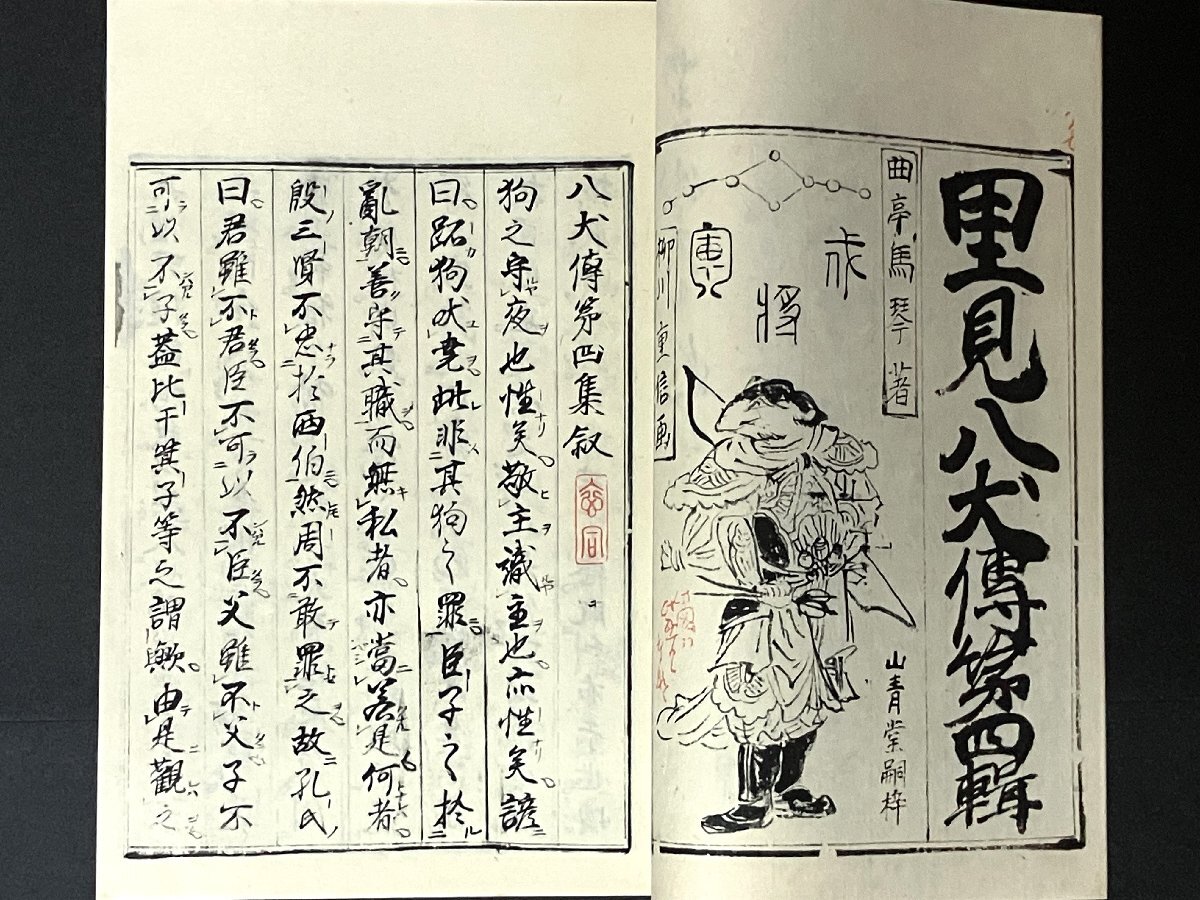 里見八犬傳第四輯
曲亭馬琴著
山青堂嗣梓
戌
将
寅
柳川重信画
八犬傳第四集叙
狗之守夜也性矣敬主識主也亦性矣諺
曰跖狗吠堯此非其狗之罪臣子之於
亂朝善守其職而無私者亦當若是何者
殷三賢不忠於西伯然周不敢罪之故孔氏
曰君雖不君臣不可以不臣父雖不父子不
可以不子蓋比干箕子等之謂歟由是觀之